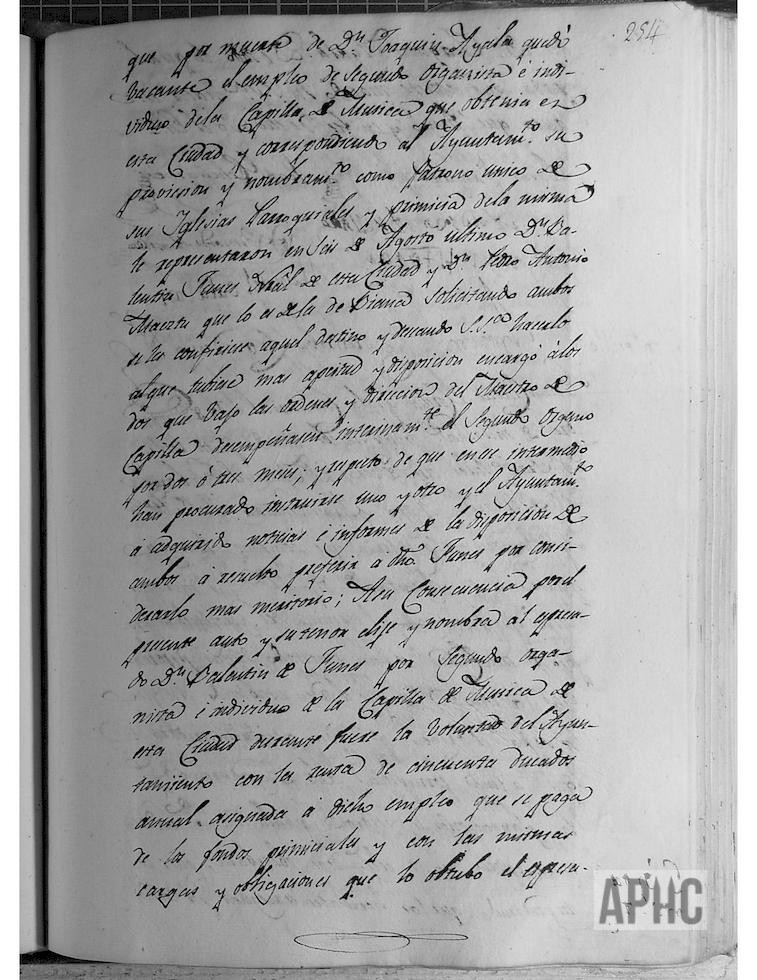 254
que por muerte de D.n Joaquin Ayala quedó
vacante el empleo de segundo organista é indi-
viduo dela Capilla de Musica que obtenia en
esta Ciudad y correspondiendo al Ayuntam.to su
provision y nombram.to como Patrono unico de
sus Iglesias Parroquiales y primicia dela misma
le representaron en seis de Agosto ultimo D.n Va-
lentin Funes de esta Ciudad y D.n Pedro Antonio
Maeztu que lo es de la de Viana solicitando ambos
se les confiriese aquel destino y deseando S.S.a hacerlo
al que tubiese mas aptitud y disposicion encargó á los
dos que bajo las ordenes y direccion del Maestro de
Capilla desempeñasen interinam.te el segundo organo
por dos ó tres meses; y respecto de que en ese intermedio
han procurado instruirse uno y otro y el Ayuntam.to
á adquirido noticias é informes de la disposicion de
ambos á resuelto preferir á dho Funes por consi-
derarlo mas meritorio; A su Consecuencia por el
presente auto y su tenor elije y nombra al espresa-
do D.n Valentin de Funes por segundo orga-
nista é individuo de la Capilla de Musica de
esta Ciudad durante fuere la voluntad del Ayun-
tamiento con la renta de cincuenta ducados
anual asignada á dicho empleo que se paga
de los fondos primiciales y con las mismas
cargas y obligaciones que lo obtubo el espresa-
APHC